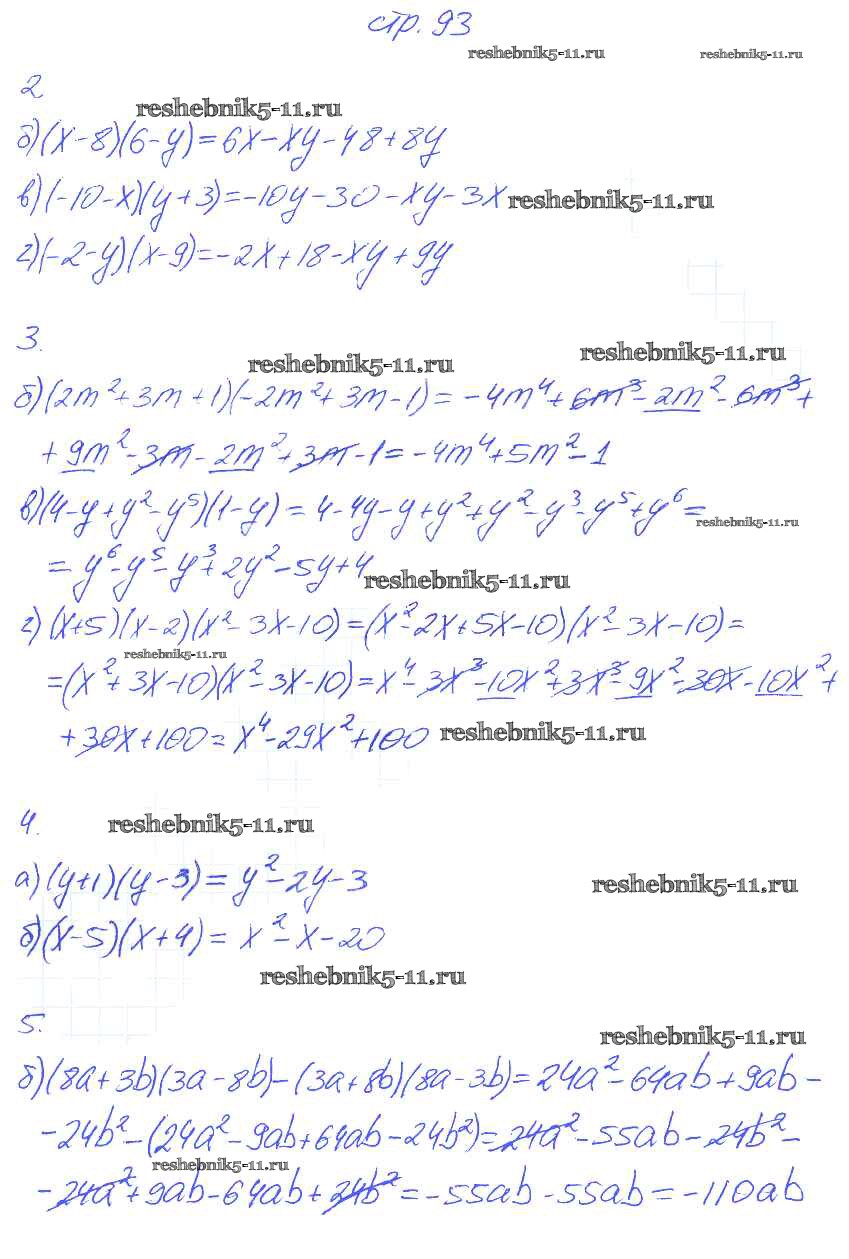 стр. 93
reshebnik5-11.ru reshebnik5-11.ru
2
reshebnik5-11.ru
б) (x-8)(6-y)=6x-xy-48+8y
в) (-10-x)(y+3)=-10y-30-xy-3x reshebnik5-11.ru
г) (-2-y)(x-9)=-2x+18-xy+9y
3.
reshebnik5-11.ru reshebnik5-11.ru
б) (2m²+3m+1)(-2m²+3m-1)=-4m⁴+6m³-2m²-6m³+
+9m²-3m-2m²+3m-1=-4m⁴+5m²-1
в) (4-y+y²-y⁵)(1-y)=4-4y-y+y²+y²-y³-y⁵+y⁶=
reshebnik5-11.ru
=y⁶-y⁵-y³+2y²-5y+4
reshebnik5-11.ru
г) (x+5)(x-2)(x²-3x-10)=(x²-2x+5x-10)(x²-3x-10)=
reshebnik5-11.ru
=(x²+3x-10)(x²-3x-10)=x⁴-3x³-10x²+3x³-9x²-30x-10x²+
+30x+100=x⁴-29x²+100 reshebnik5-11.ru
4.
reshebnik5-11.ru
а) (y+1)(y-3)=y²-2y-3
reshebnik5-11.ru
б) (x-5)(x+4)=x²-x-20
reshebnik5-11.ru
5.
reshebnik5-11.ru
б) (8a+3b)(3a-8b)-(3a+8b)(8a-3b)=24a²-64ab+9ab-
-24b²-(24a²-9ab+64ab-24b²)=24a²-55ab-24b²-
reshebnik5-11.ru
-24a²+9ab-64ab+24b²=-55ab-55ab=-110ab